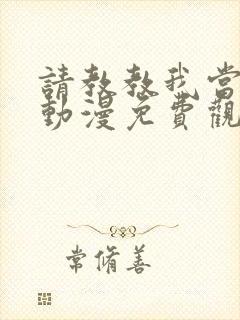 請教教我當
動漫免費觀
常脩善